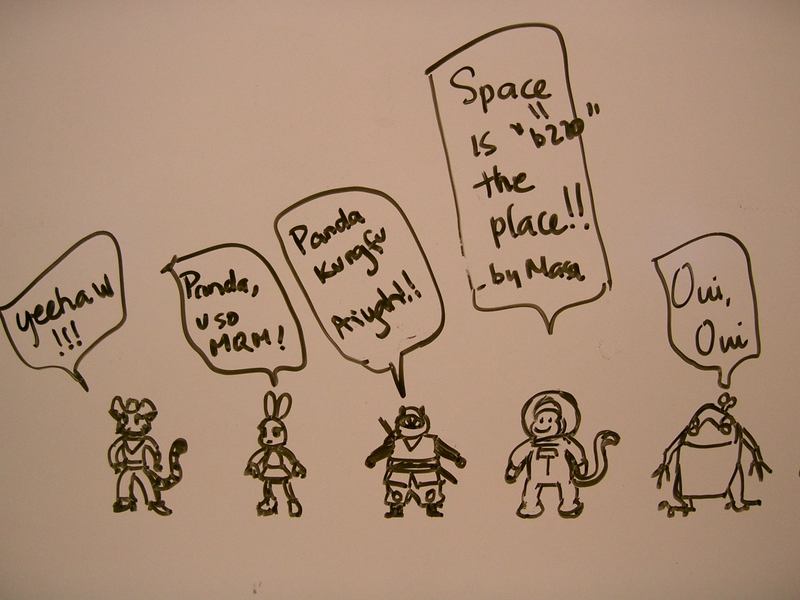 yeehaw
!!!
Panda,
u so
MQM!
Panda
Kungfu
Aiyah!!
Space
is "b220"
the
place!!
- by Masa
Oui,
Oui